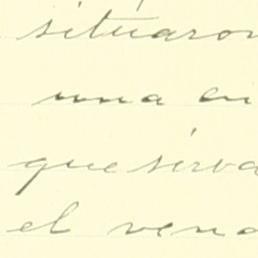 situaron
una en
que sirva
el vend